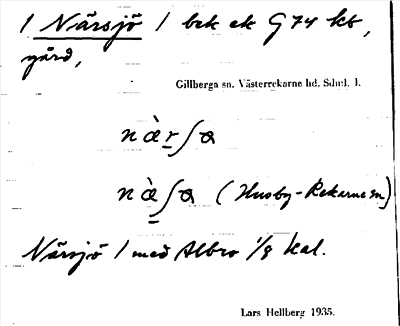 1 Närsjö / bek ek G 74 kt,
gård,
Gillberga sn. Västerrekarne hd. Sdml. l.
(Husby-Rekarne sn)
Närsjö / med Albro 1/8 kal.
Lars Hellberg 1935.